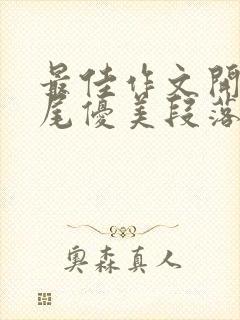 最佳作文開
尾優美段落
奧森真人